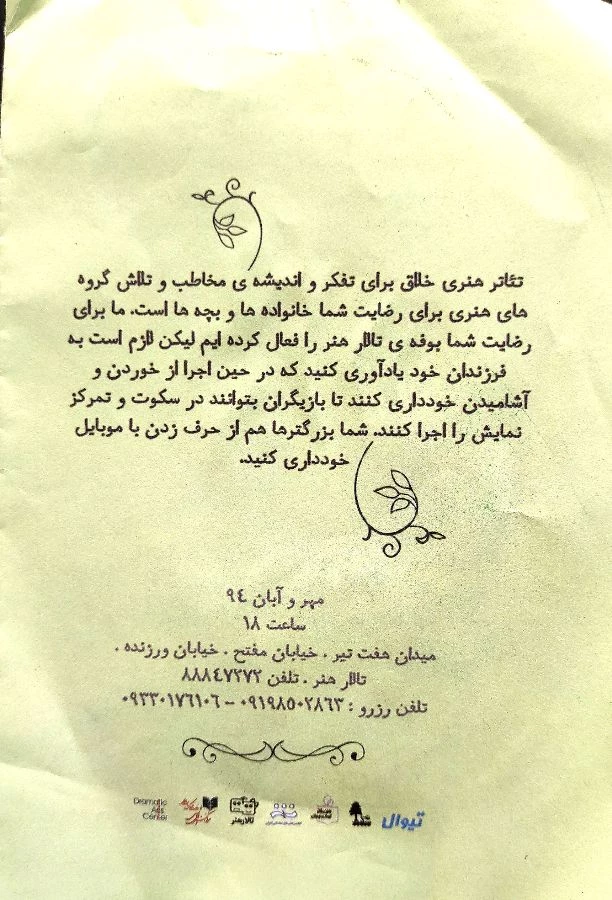 تئاتر هنری خلاق برای تفکر و اندیشه ی مخاطب و تلاش گروه
های هنری برای رضایت شما خانواده ها و بچه ها است. ما برای
رضایت شما بوفه ی تالار هنر را فعال کرده ایم لیکن لازم است به
فرزندان خود یادآوری کنید که در حین اجرا از خوردن و
آشامیدن خودداری کنند تا بازیگران بتوانند در سکوت و تمرکز
نمایش را اجرا کنند. شما بزرگترها هم از حرف زدن با موبایل
خودداری کنید.
مهر و آبان ۹٤
ساعت ۱۸
میدان هفت تیر . خیابان مفتح . خیابان ورزنده .
تالار هنر . تلفن ۸۸۸٤۷۲۷۲
تلفن رزرو : ۰۹۱۹۸۵۰۲۸۶۳ - ۰۹۳۳۰۱۷۶۱۰۶
تیوال
تالار هنر
Dramatic
Arts
Center